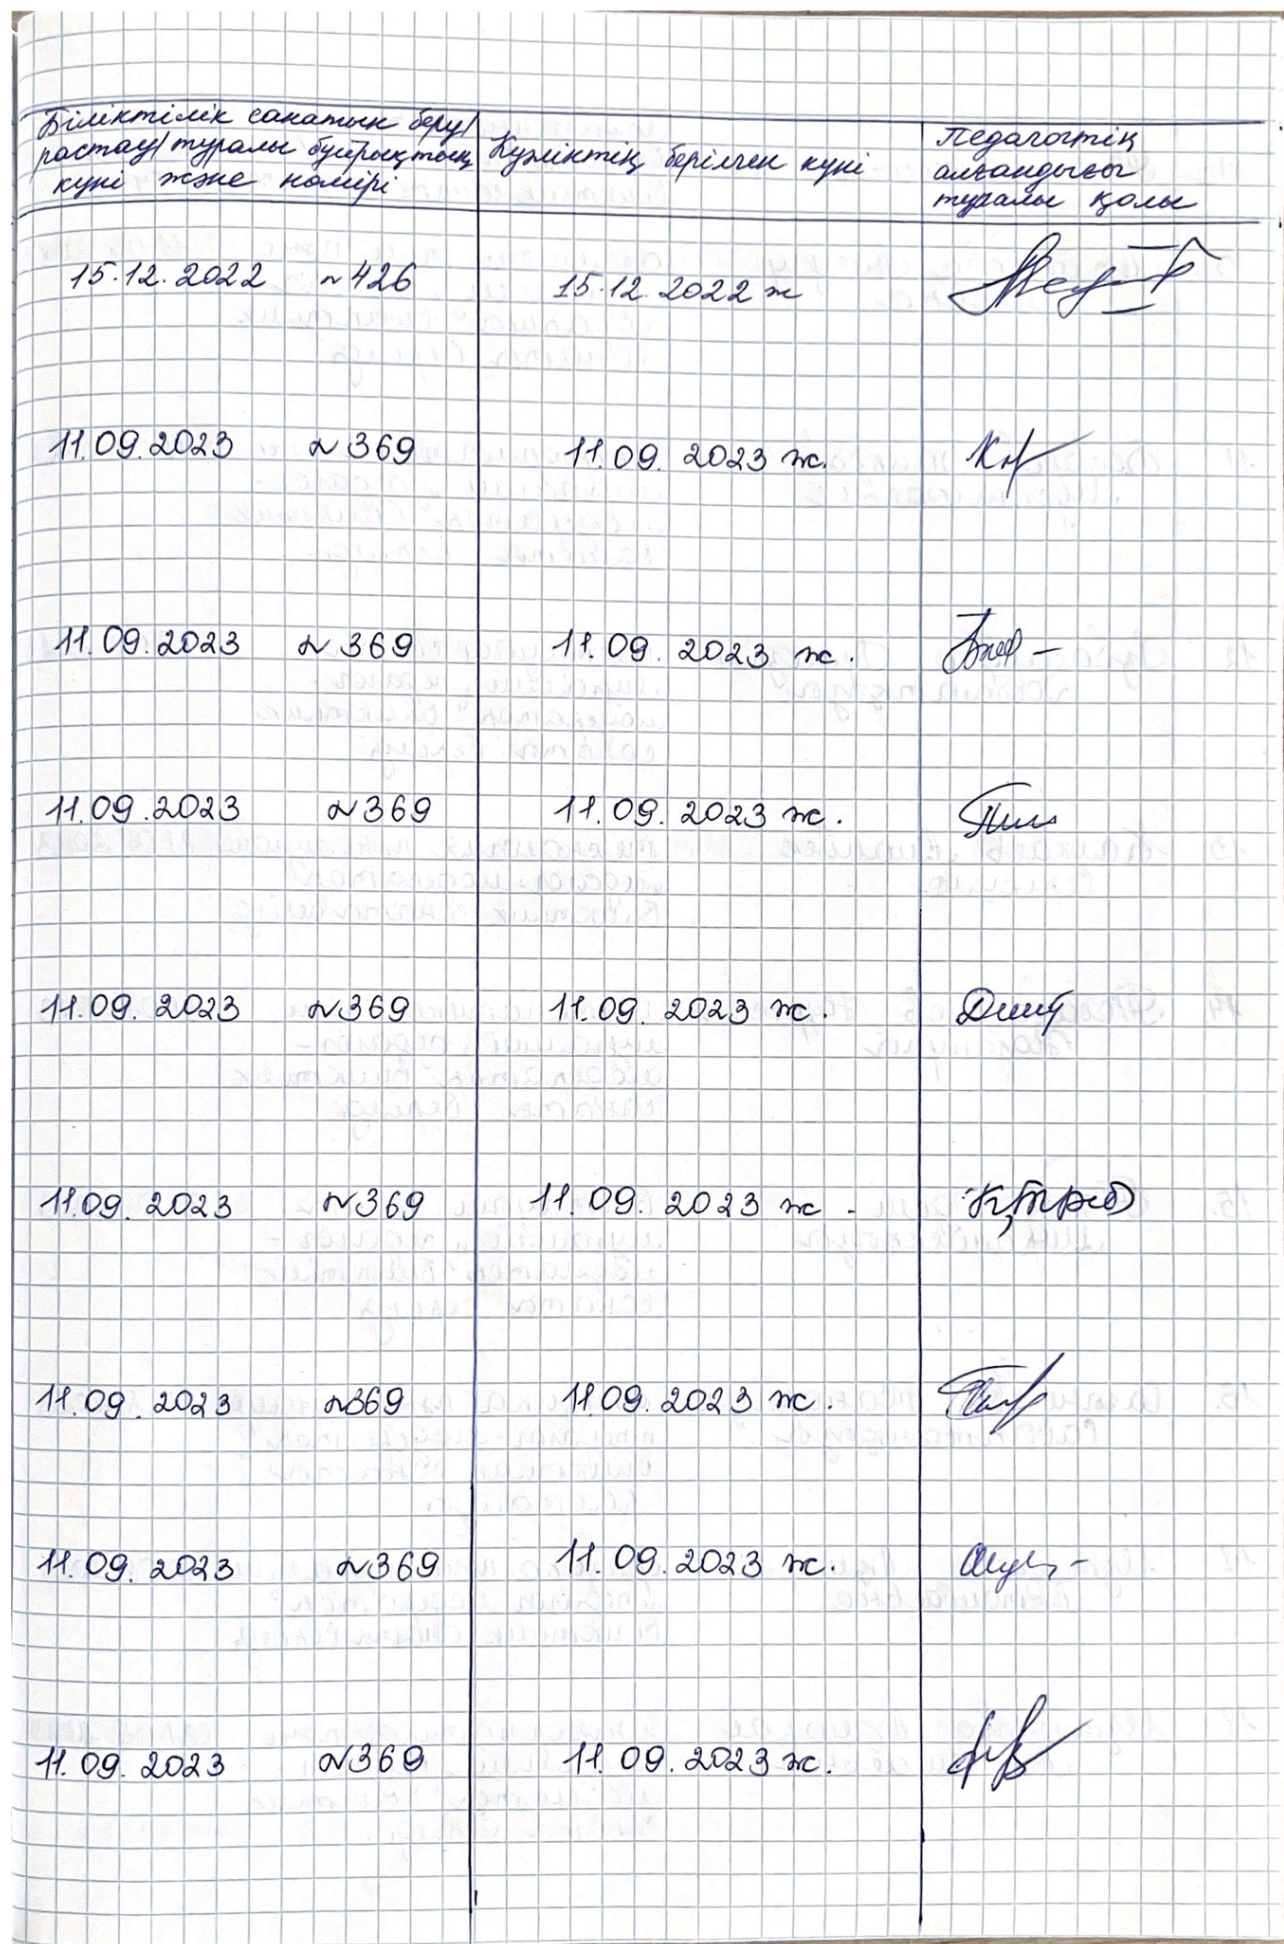 Біліктілік санатын беру/
растау/ туралы бұйрықтың
күні және нөмірі
Куәліктің берілген күні
Педагогтің
алғандығы
туралы қолы
15.12.2022 №426 15.12.2022 ж
11.09.2023 №369 11.09.2023 ж.
11.09.2023 №369 11.09.2023 ж.
11.09.2023 №369 11.09.2023 ж.
11.09.2023 №369 11.09.2023 ж.
11.09.2023 №369 11.09.2023 ж.
11.09.2023 №369 11.09.2023 ж.
11.09.2023 №369 11.09.2023 ж.
11.09.2023 №369 11.09.2023 ж.